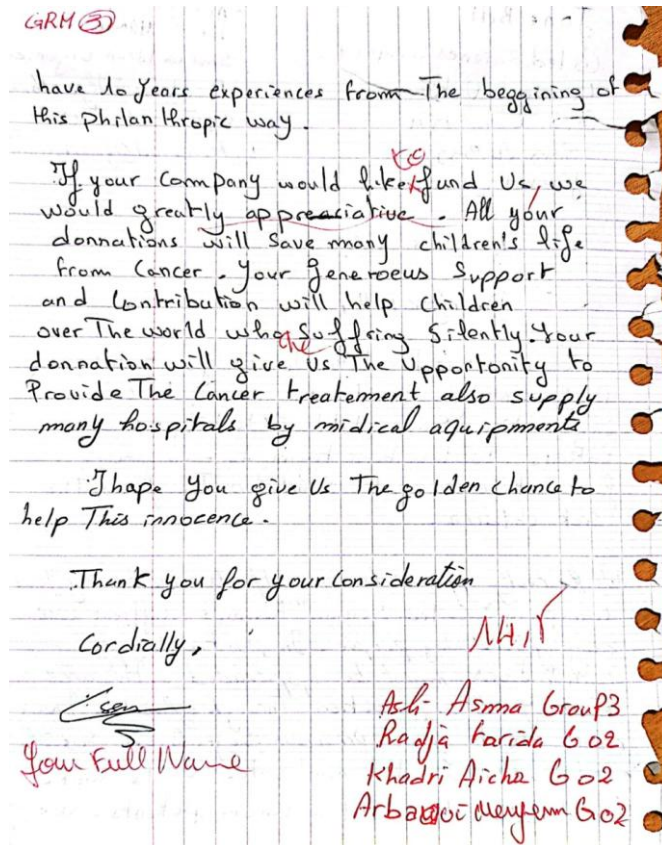 GRM 3
have 10 years experiences from The beggining of
this philanthropic way.
to
If your company would like fund Us, we
would greatly appreasiative. All your
donnations will save many children's life
from Cancer. Your generoeus support
and Contribution will help children
over The world who suffring silently. Your
the
donnation will give Us The Upportunity to
Provide The Cancer treatement also supply
many hospitals by midical aquipments
I hape you give Us The golden chance to
help This innocence.
Thank you for your Consideration
Cordially,
Your Full Name
Asli Asma Group3
Radja Farida G02
Khadri Aicha G02
Meryem G02